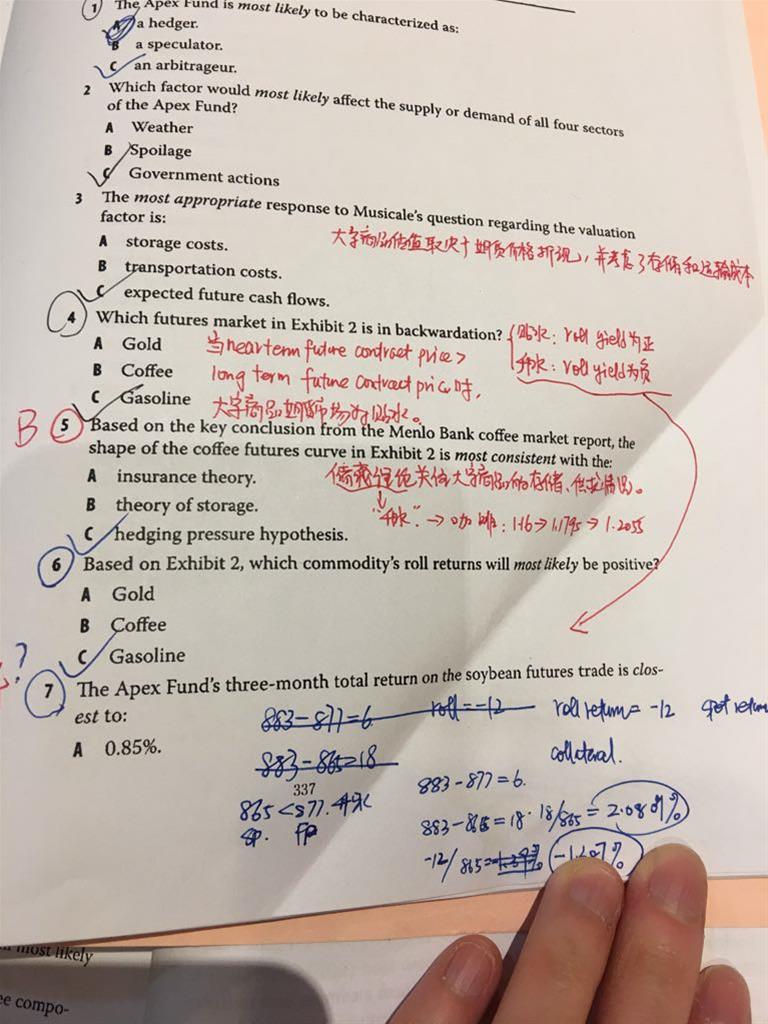 1 The Apex Fund is most likely to be characterized as:
A a hedger.
B a speculator.
C an arbitrageur.
2 Which factor would most likely affect the supply or demand of all four sectors
of the Apex Fund?
A Weather
B Spoilage
C Government actions
3 The most appropriate response to Musicale's question regarding the valuation
factor is:
A storage costs.
大宗商品估值取决于期货价格折现，并考虑了存储和运输成本
B transportation costs.
C expected future cash flows.
4 Which futures market in Exhibit 2 is in backwardation?
贴水：roll yield为正
升水：roll yield为负
A Gold
当near term future contract price >
B Coffee
long term future contract price时，
C Gasoline
大宗商品期货市场为贴水。
B
5 Based on the key conclusion from the Menlo Bank coffee market report, the
shape of the coffee futures curve in Exhibit 2 is most consistent with the:
A insurance theory.
储藏理论关注大宗商品的存储、供求情况。
B theory of storage.
"升水" → 咖啡：1.16→1.1795→1.2055
C hedging pressure hypothesis.
6 Based on Exhibit 2, which commodity's roll returns will most likely be positive?
A Gold
B Coffee
C Gasoline
?
7 The Apex Fund's three-month total return on the soybean futures trade is clos-
est to:
883-877=6 roll=-12 roll return = -12 spot return
A 0.85%.
883-865=18 collateral.
337
883-877=6.
865<877. 升水
883-865=18. 18/865=2.0809%
SP. FP
-12/865= 
most likely
ee compo-